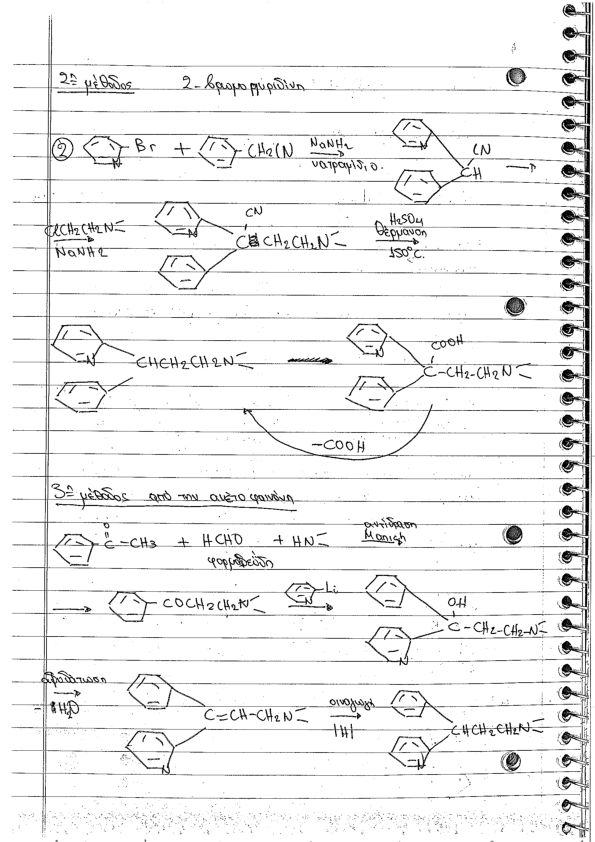 2η μέθοδος 2-βρωμοπυριδίνη
② N Br + CH2CN NaNH2 νατραμίδιο N CN CH
ClCH2CH2N NaNH2 N CN C CH2CH2N H2SO4 θέρμανση 150°C.
N CHCH2CH2N N COOH C-CH2-CH2N
-COOH
3η μέθοδος από την ακετοφαινόνη
O C-CH3 + HCHO + HN αντίδραση Manish
φορμαλδεΰδη
COCH2CH2N N Li OH C-CH2-CH2-N N
αφυδάτωση -H2O C=CH-CH2N N αναγωγή |H| CHCH2CH2N N